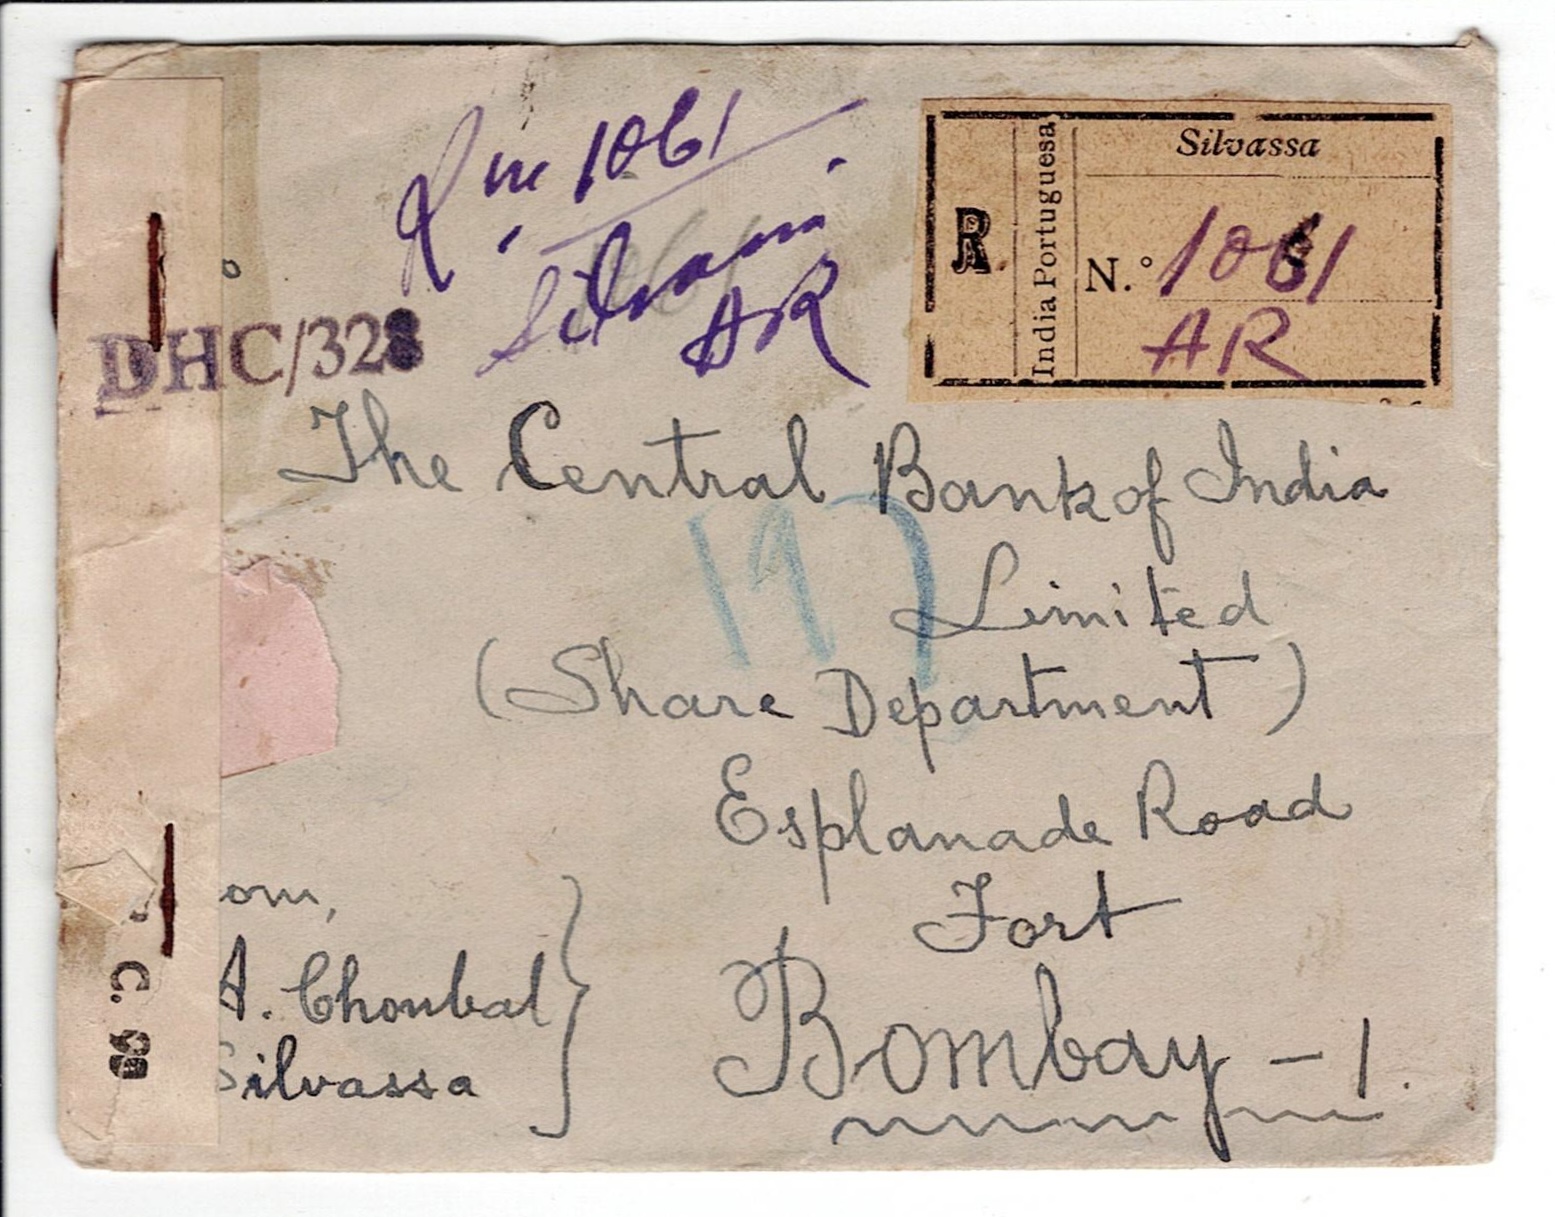 R no 1061
Silvassa
AR
Silvassa
R
India Portuguesa
N.º 1061
AR
DHC/328
The Central Bank of India
Limited
(Share Department)
Esplanade Road
Fort
Bombay - 1.
om,
A. Choubal
Silvassa